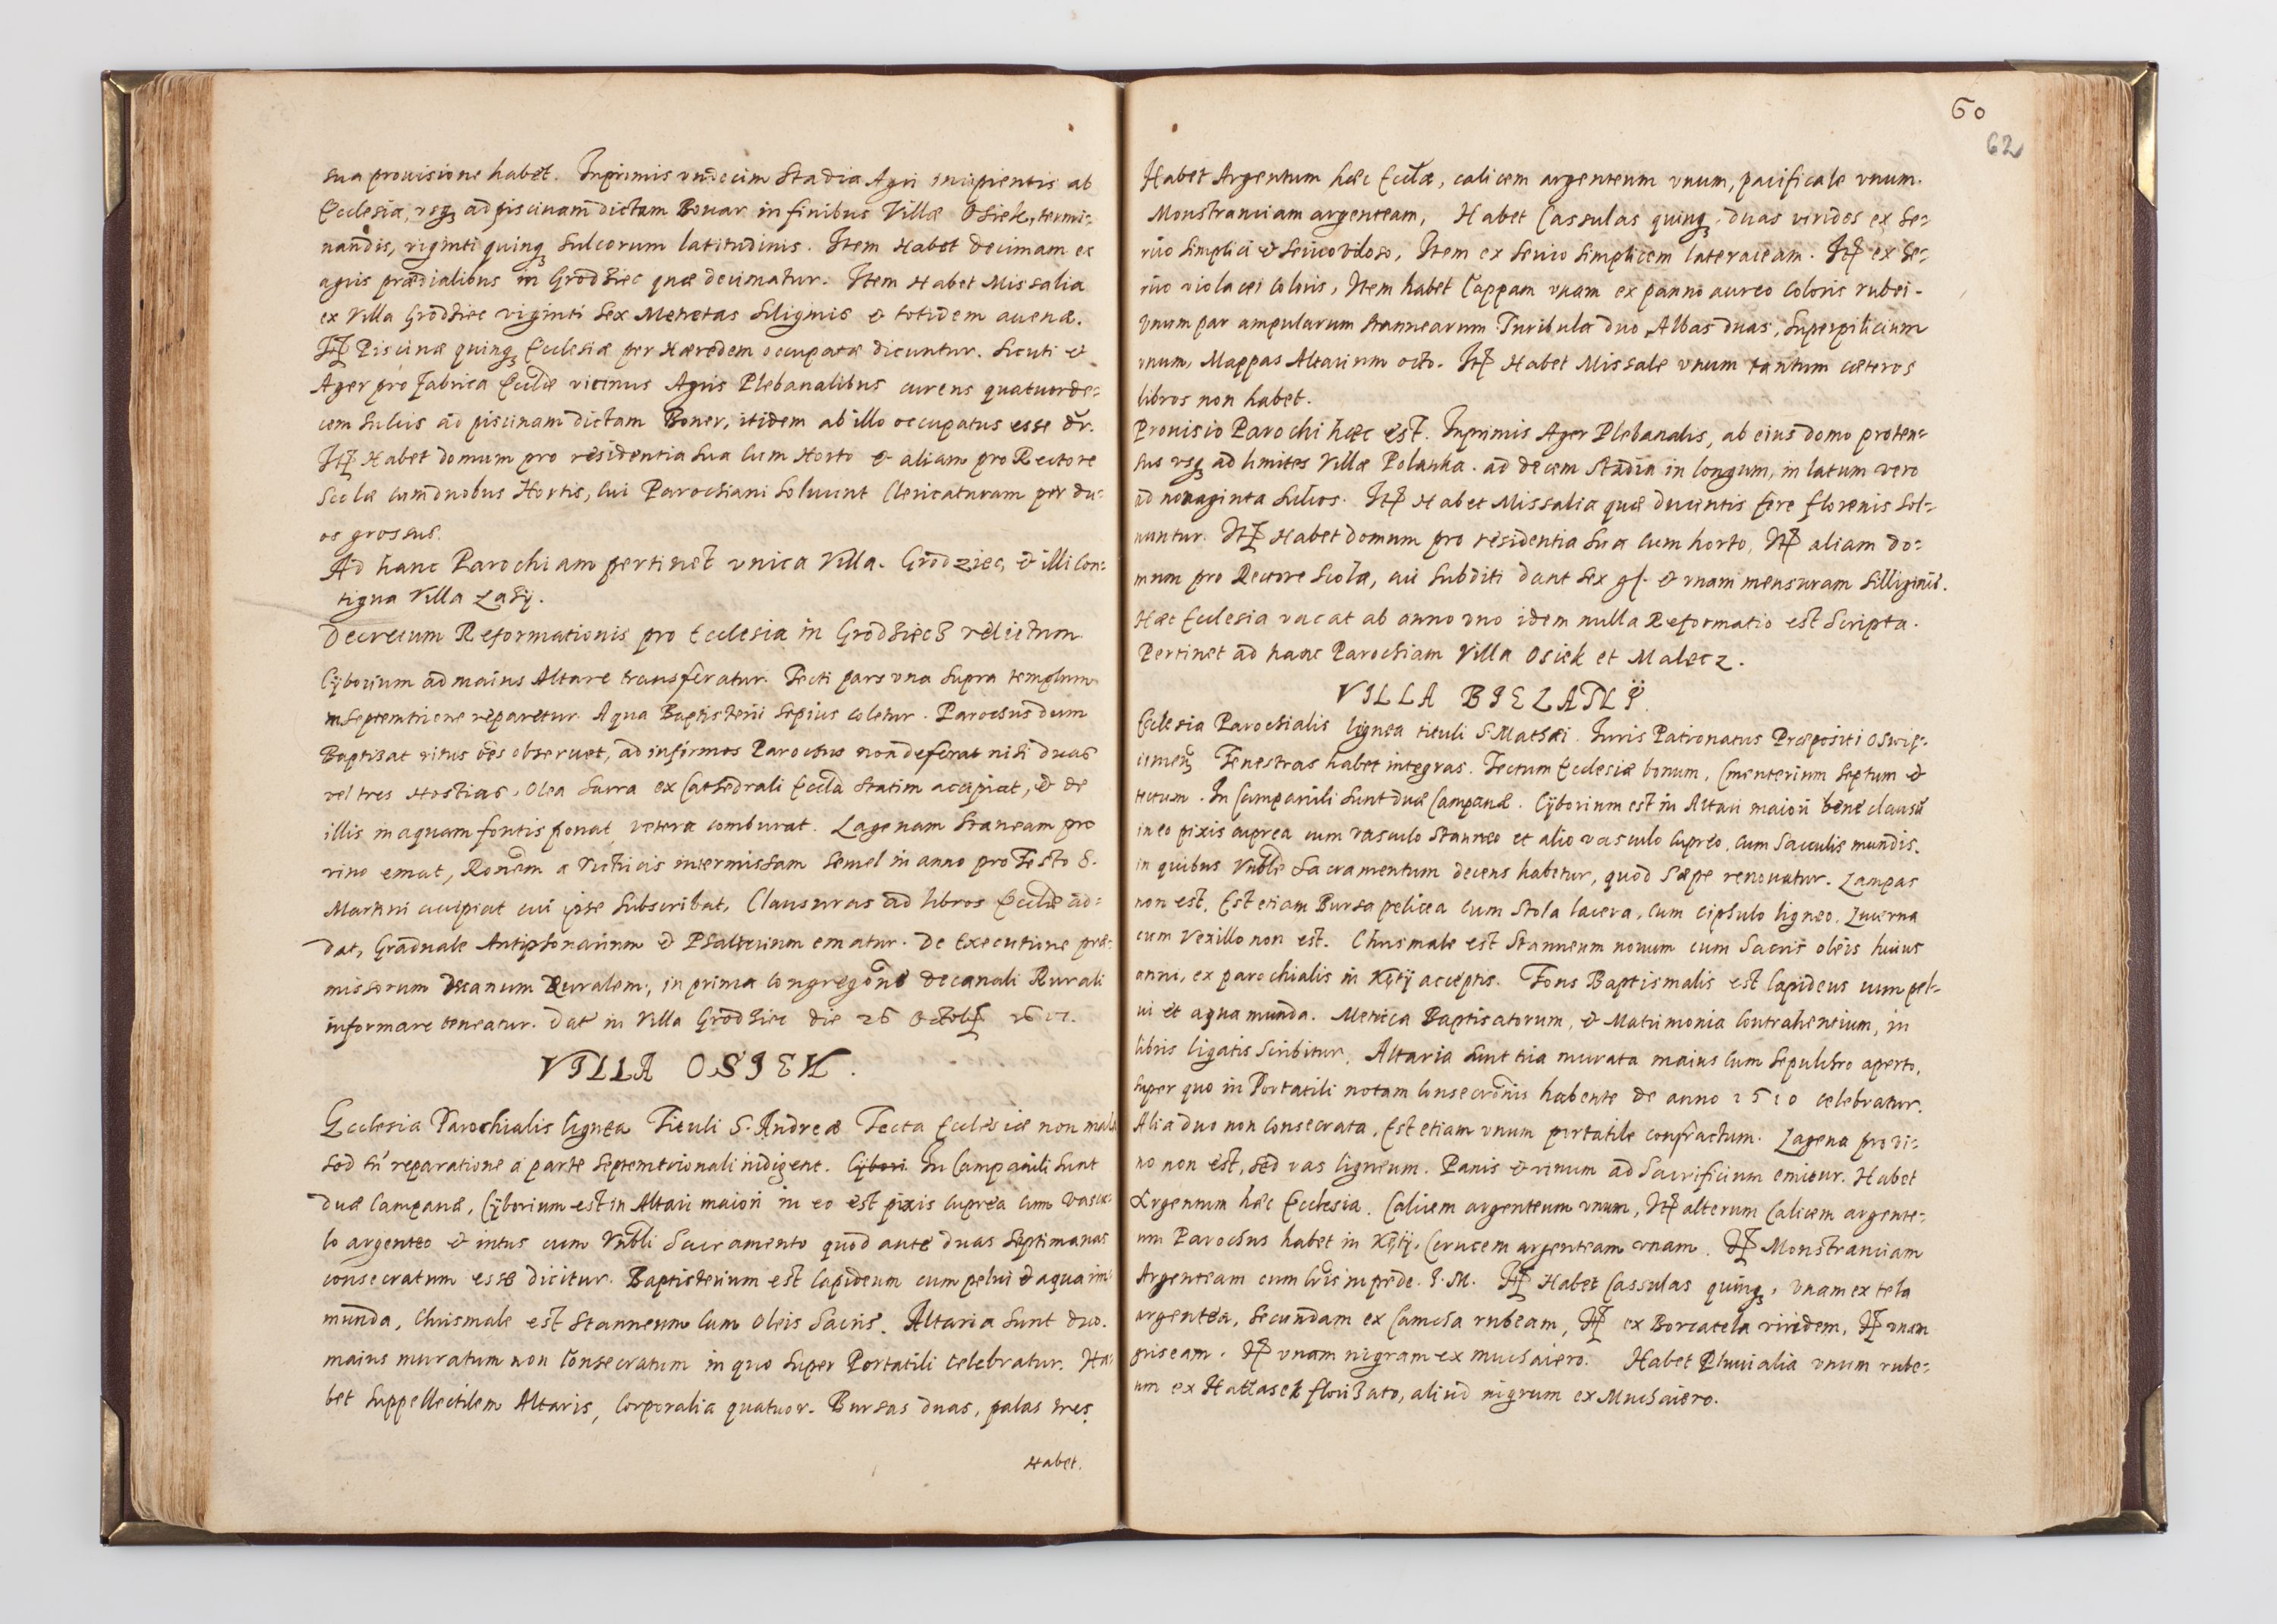 sua prouisione habet. Inprimis vndecim stadia Agri incipientis ab
Ecclesia, vsq₃ ad piscinam dictam Bonar in finibus Villæ Osiek, termi:
nandis, viginti quinq₃ sulcorum latitudinis. Item Habet decimam ex
agris prædialibus in Grodziec quæ decimatur. Item Habet Missalia
ex Villa Grodziec viginti sex Metretas siliginis & totidem auenæ.
It Piscinæ quinq₃ Ecclesiæ per Hæredem occupatæ dicuntur. Sicuti &
Ager pro fabrica Eccliæ vicinus Agris Plebanalibus curens quatuorde=
cem sulcis ad piscinam dictam Boner, itidem ab illo occupatus esse dr.
It Habet domum pro residentia sua cum Horto & aliam pro Rectore
Scolæ cum duobus Hortis, cui Parochiani soluunt Clericaturam per du:
os grossus.
Ad hanc Parochiam pertinet vnica Villa. Grodziec, & illi con:
tigua Villa Zasy.
Decretum Reformationis pro Ecclesia in Grodziecz relictum
Cÿborium ad maius Altare transferatur. Tecti pars vna supra templum
in septemtrione reparetur. Aqua Baptisterii sepius coletur. Parochus dum
Baptisat ritus oēs obseruet, ad infirmos Parochus non deferat nisi duas
vel tres Hostias, Olea sacra ex Cathedrali Eccla statim accipiat, & de
illis in aquam fontis ponat, vetera comburat. Lagenam staneam pro
vino emat, Ronem a Victricis intermissam semel in anno pro Festo S.
Martini accipiat cui ipse subscribat, Clausuras ad libros Eccliæ ad=
dat, Graduale Antiphonarium & Psalterium ematur. De Executione præ=
missorum Decanum Ruralem, in prima congregone decanali Rurali
informare teneatur. Dat in Villa Grodziec die 26 Octob 1617.
VILLA OSIEK.
Ecclesia Parochialis lignea Tituli S. Andreæ Tecta Ecclesiæ non mala
sed tn̄ reparatione a parte septemtrionali indigent. Cÿbori In Campanili sunt
duæ Campanæ, Cÿborium est in Altari maiori in eo est pixis cuprea cum vascu:
lo argenteo & intus cum Vnbli Sacramento quod ante duas septimanas
consecratum esse dicitur. Baptisterium est lapideum cum pelui & aqua im:
munda, Chrismale est stanneum cum Oleis Sacris. Altaria sunt duo.
maius muratum non consecratum in quo super Portatili celebratur. Ha:
bet suppellectilem Altaris, Corporalia quatuor. Bursas duas, palas tres.
Habet.
60
62
Habet Argentum hæc Ecclia, calicem argenteum vnum, pacificale vnum.
Monstranciam argenteam, Habet Cassulas quinq₃, duas virides ex se=
rico simplici & serico viloso, Item ex serico simplicem lateraceam. It ex se=
rico violacei coloris, Item habet Cappam vnam ex panno aureo coloris rubei.
vnum par ampularum stannearum. Turibula duo, Albas duas, superpilicium
vnum, Mappas Altarium octo. It Habet Missale vnum tantum cæteros
libros non habet.
Prouisio Parochi hæc est. Inprimis Ager Plebanalis, ab eius domo proten=
sus vsq₃ ad limites Villæ Polanka. ad decem stadia in longum, in latum vero
ad nonaginta sulcos. It Habet Missalia quæ ducentis fere florenis sol=
uuntur. It Habet domum pro residentia sua cum horto, It aliam do=
mum pro Rectore Scolæ, cui subditi dant sex g. & vnam mensuram silliginis.
Hæc Ecclesia vacat ab anno vno idem nulla Reformatio est scripta.
Pertinet ad hanc Parochiam Villa Osiek et Malecz.
VILLA BIELANŸ.
Ecclesia Parochialis lignea tituli S. Mathæi. Iuris Patronatus Præpositi Oswie:
cimen₃ Fenestras habet integras. Tectum Ecclesiæ bonum, Cmenterium septum &
tectum. In Campanili sunt duæ Campanæ. Cÿborium est in Altari maiori bene clausū
in eo pixis cuprea cum vasculo stanneo et alio vasculo cupreo, cum sacculis mundis.
in quibus Vnble Sacramentum decens habetur, quod sæpe renouatur. Lampas
non est. Est etiam Bursa pelicea cum stola lacera, cum cipsulo ligneo. Lucerna
cum Vexillo non est. Chrismale est stanneum nouum cum Sacris oleis huius
anni, ex parochialis in Kęty acceptis. Fons Baptismalis est lapideus cum pel=
ui et aqua munda. Metrica Baptisatorum, & Matrimonia contrahentium, in
libris ligatis scribitur. Altaria sunt tria murata maius cum sepulchro aperto,
super quo in Portatili notam consecronis habente de anno 1510 celebratur.
Alia duo non consecrata, Est etiam vnum portatile confractum. Lagena pro vi=
no non est, sed vas ligneum. Panis & vinum ad sacrificium emitur. Habet
Argentum hæc Ecclesia. Calicem argenteum vnum, It alterum Calicem argente=
um Parochus habet in Kęty. Crucem argenteam vnam. It Monstranciam
Argenteam cum cris in pede. I. M. It Habet Cassulas quinq₃, vnam ex tela
argentea, secundam ex Camcha rubeam, It ex Borcatela viridem, It vnam
griseam. It vnam nigram ex muchaiero. Habet Pluuialia vnum rube=
um ex Hatlasek florizato, aliud nigrum ex Muchaiero.